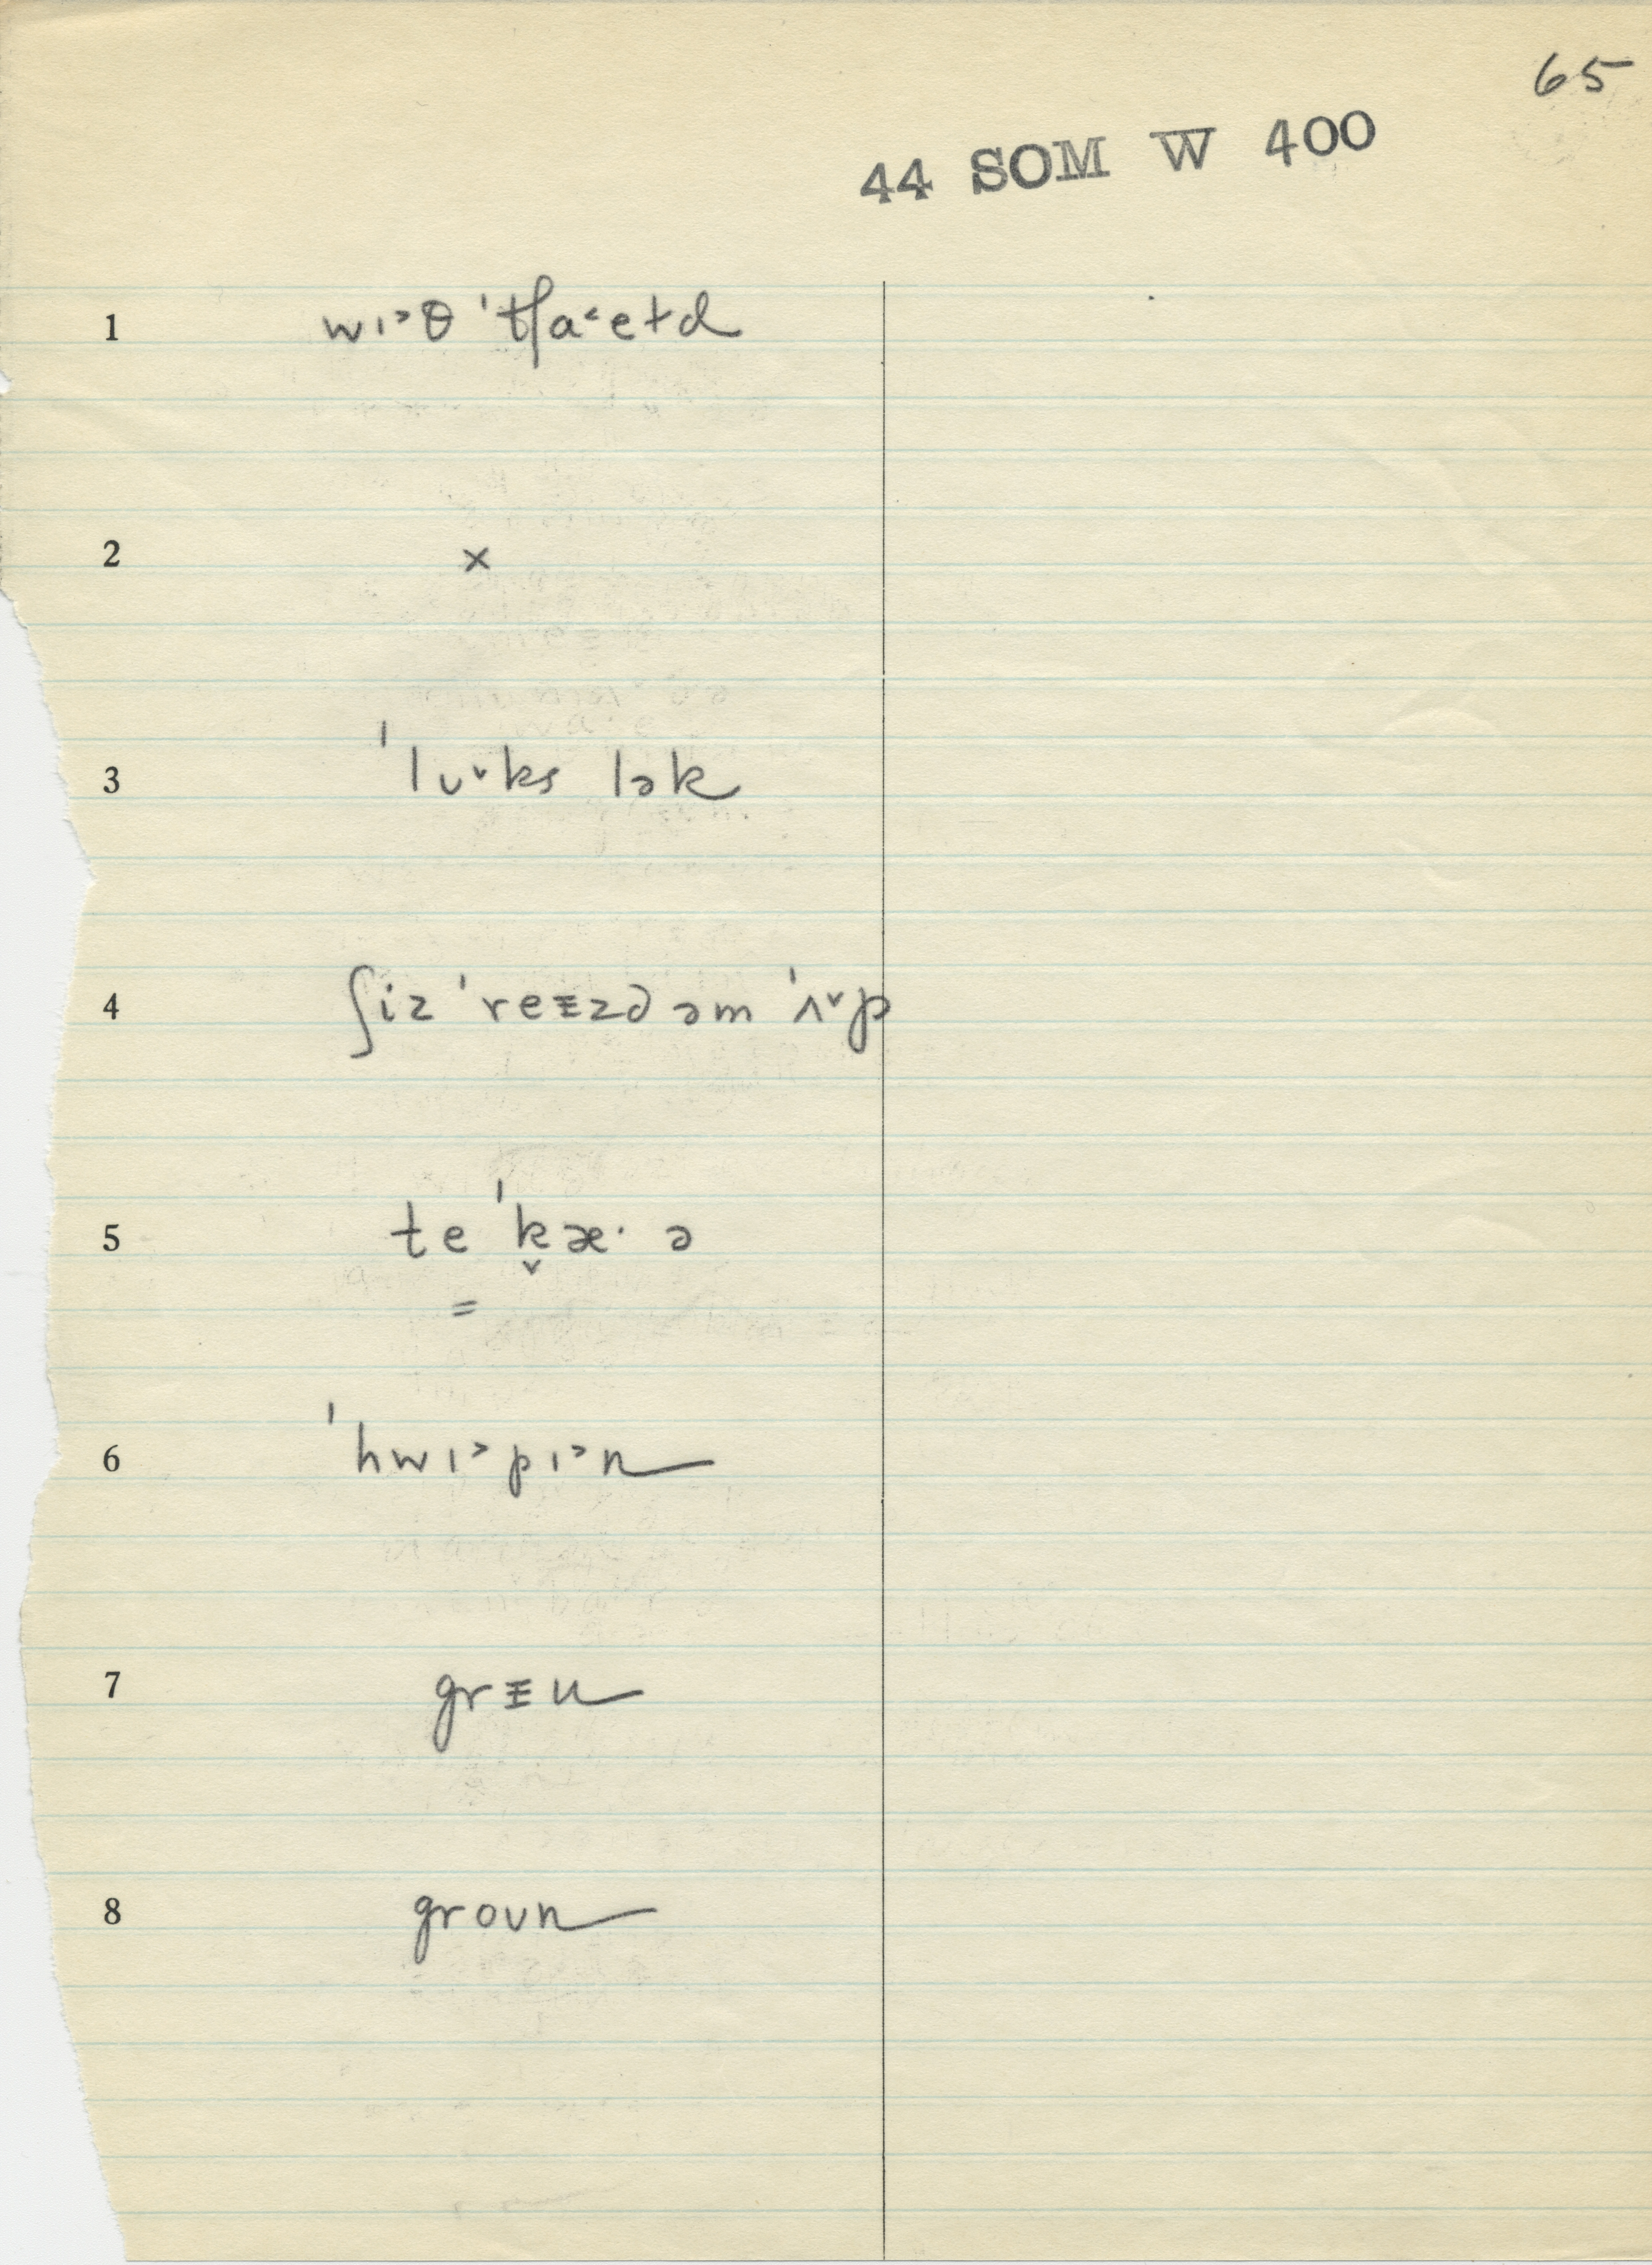 65
44 SOM W 400
1 wɪ˃θ ˈtʃa˂eɫd
2 ×
3 ˈlʊ˅ks lək
4 ʃiz ˈreᵻzd əm ˈʌ˅p
5 te ˈk̬æ· ə
=
6 ˈhwɪ˃pɪ˃n
7 grᵻu
8 groʊn